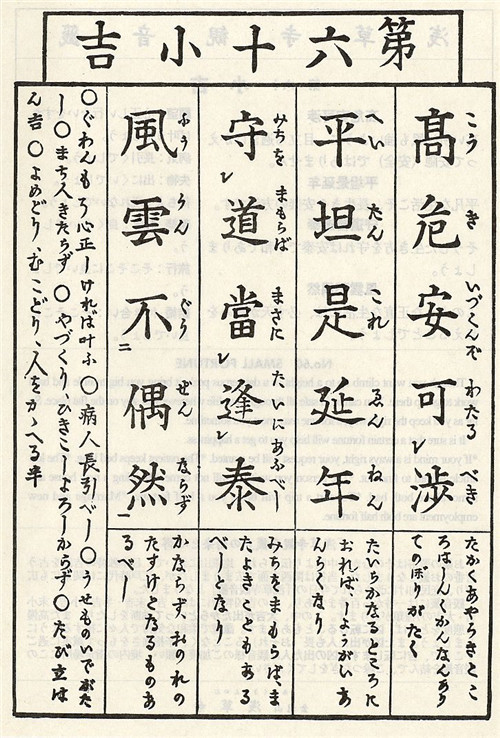 第六十小吉
髙危安可渉
こう き いづくんぞ わたる べき
たかくあやうきとこ
ろはしんくかんなんあり
てのぼりがたく
平坦是延年
へい たん これ ゑん ねん
たいらかなるところに
おれば、しようがいあ
んらくなり
守レ道當レ逢泰
みちを まもらば まさに たいにあふべし
みちをまもらば、ま
たよきこともある
べしとなり
風雲不二偶然一
ふう うん ぐう ぜん ならず
かならずおのれの
たすけとなるものあ
るべし
〇ぐわんもう心正しければ叶ふ 〇病人長引べし 〇うせものいでがた
し 〇まち人きたらず 〇やづくりひきこしよろしからず 〇たび立は
ん吉 〇よめどり、むこどり、人をかゝへる半